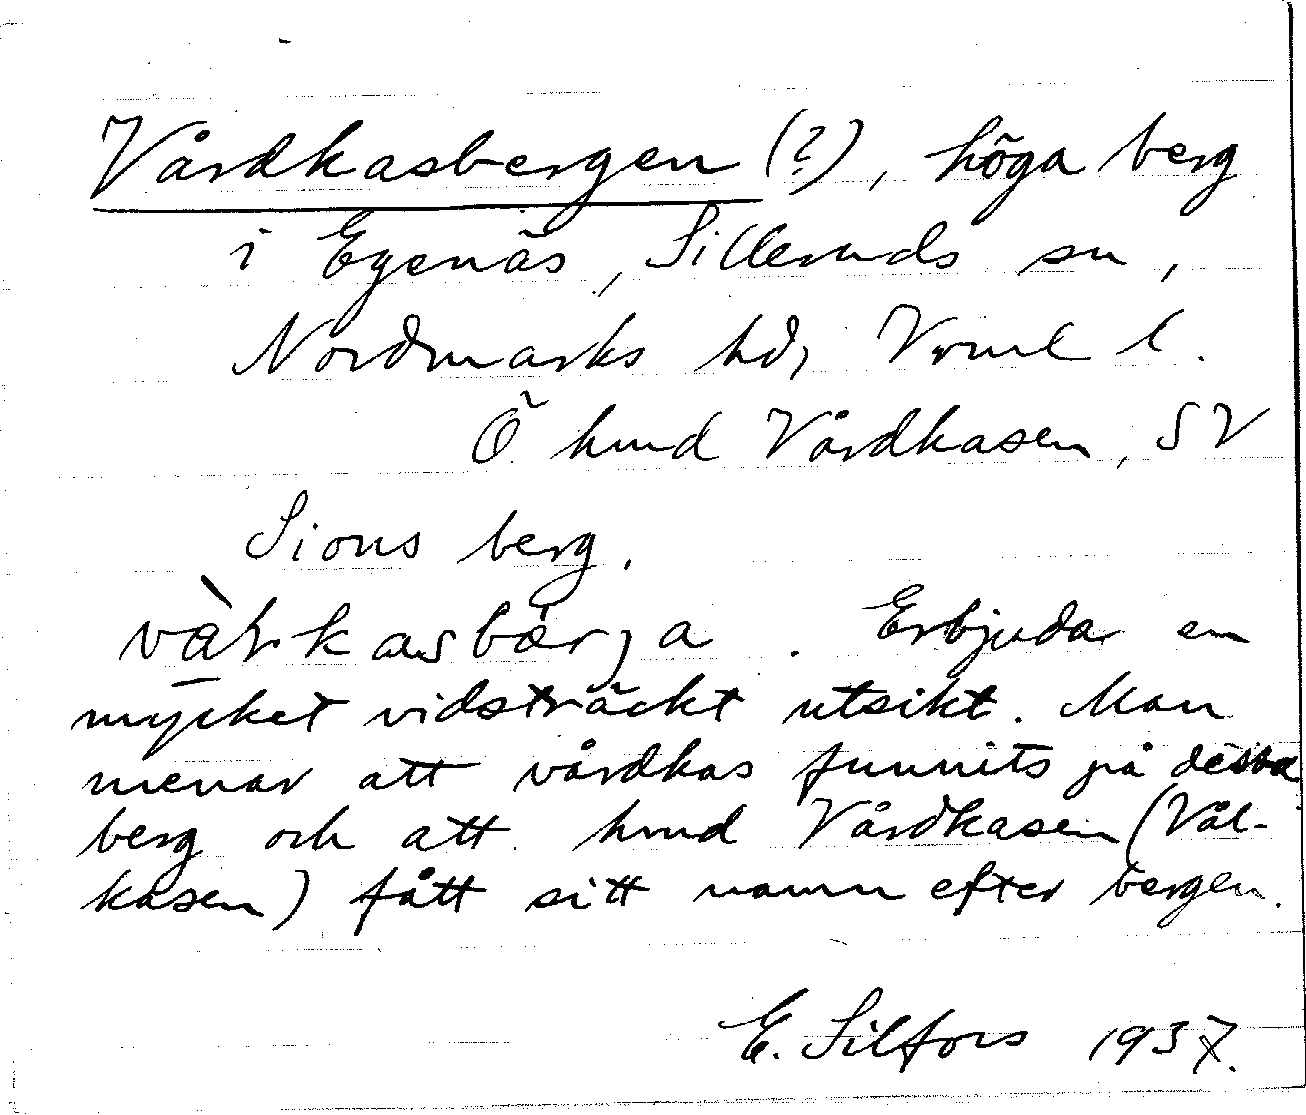 Vårdkasbergen (?), höga berg
i Egenäs, Silleruds sn,
Nordmarks hd, Vrml l.
Ö hmd Vårdkasen, SV
Sions berg.
vàḷkasbärja. Erbjudar en
mycket vidsträckt utsikt. Man
menar att vårdkas funnits på dessa
berg och att hmd Vårdkasen (Vål-
kasen) fått sitt namn efter bergen.
E. Silfors 1937.